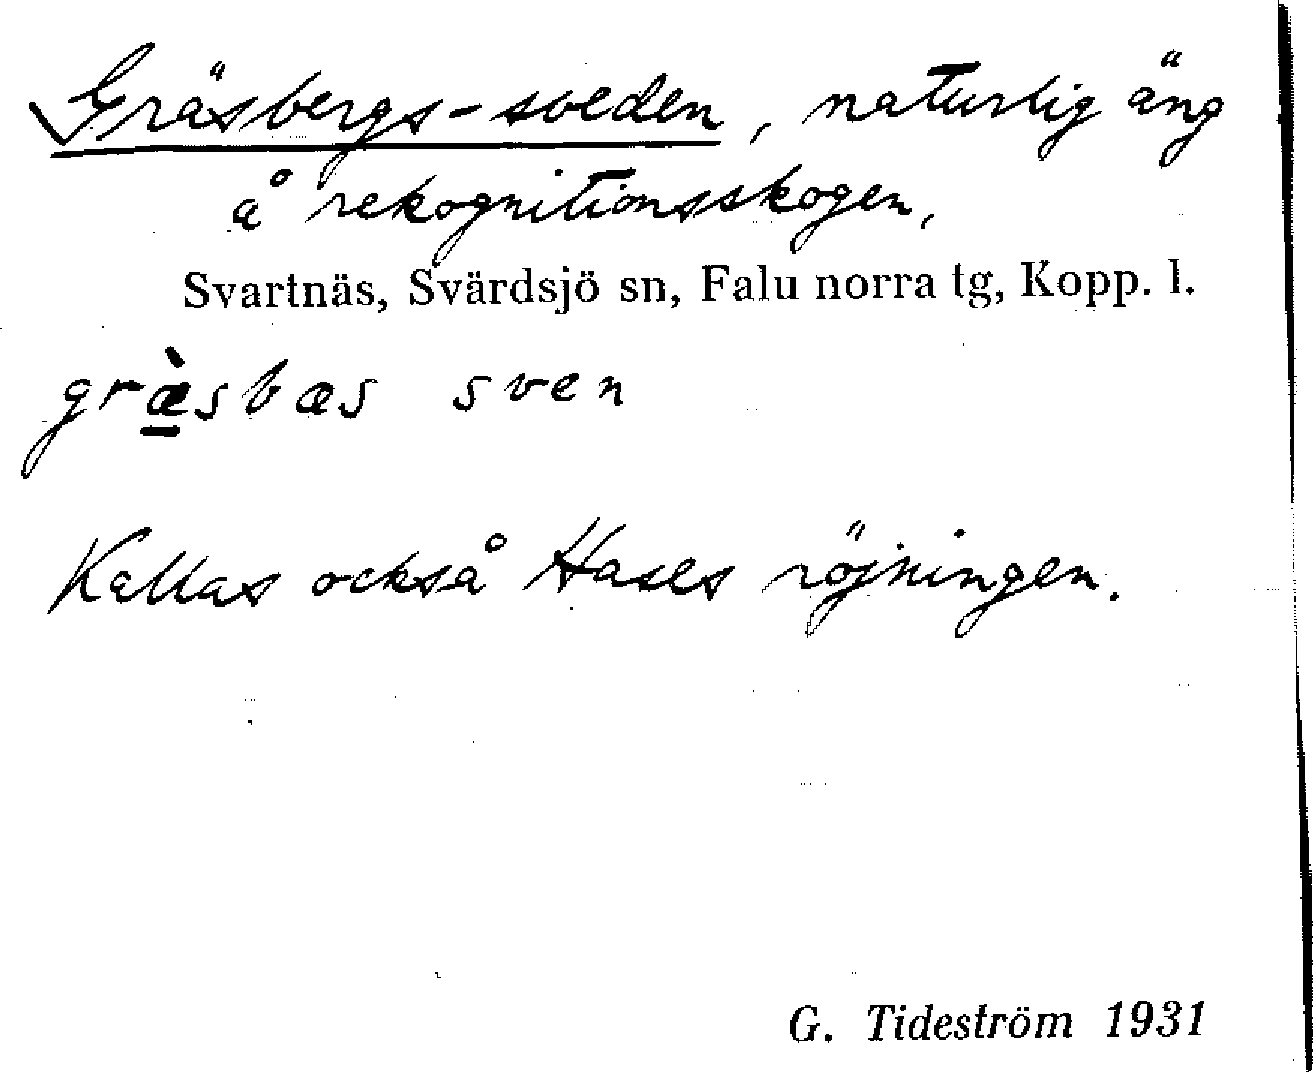 Gräsbergs-sveden, naturlig äng
å rekognitionsskogen,
Svartnäs, Svärdsjö sn, Falu norra tg, Kopp. l.
græ̠̀sbæs sven
Kallas också Hases röjningen.
G. Tideström 1931